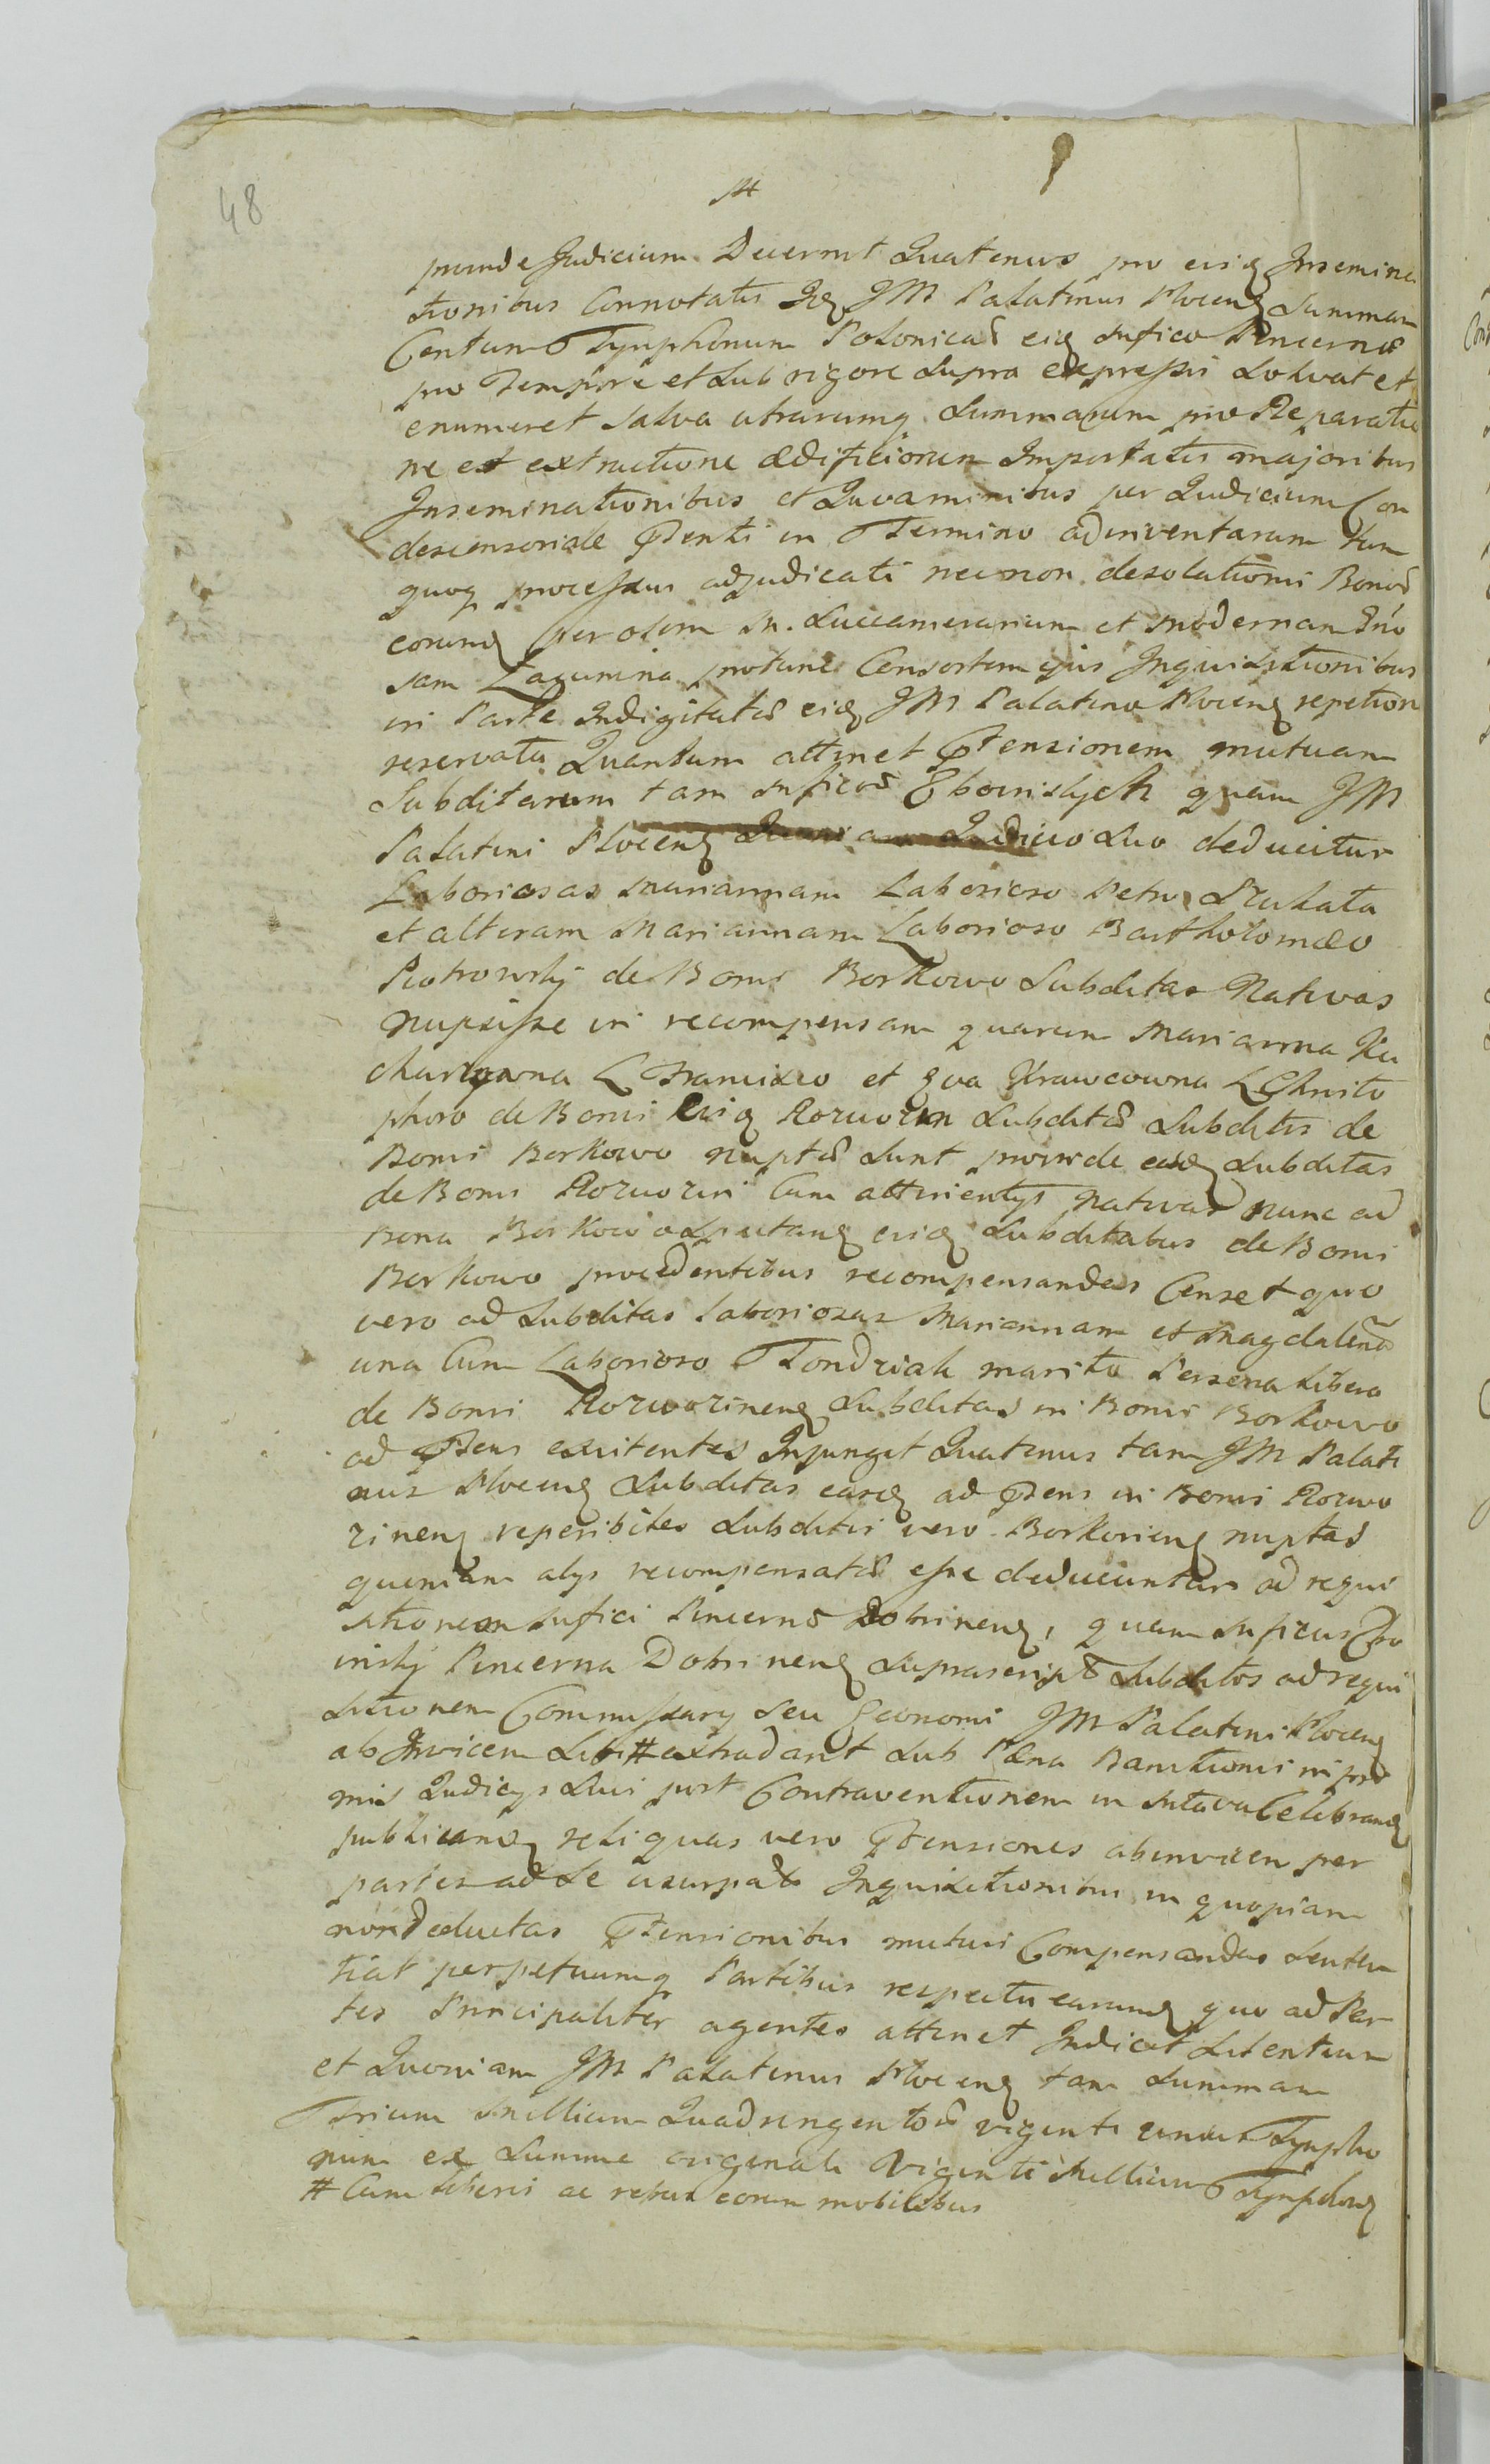 48
proinde Judicium Decernit Quatenus pro eisq Insemina
tionibus Connotatis Idq JM Palatinus Plocenq Summam
Centum Tynphonum Polonical eiq Mfico Pincernæ
pro Tempore et Sub rigore Supra expresso Solvat et
enumeret Salva utrarumq Summarum pro Reparatio
ne et extructione ædificiorum Importatis majoribus
Inseminationibus et Gravaminibus per Judicium Con
descensoriale Pnti in Termino adinventarum tum
quoq processus adjudicati necnon desolationis Bonor
eorumq per olim M. Succamerarium et modernam
sam protunc Consortem ejus Inquisitionibus
in Parte Indigitatis eiq JM Palatino Plocenq repetition
reservata Quantum attinet Ptensionem mutuam
Subditarum tam Mficor Zboinskych quam JM
Palatini Plocenq Quoniam Judicio Suo deducitur
Laboriosas Mariannam Laborioso Petro
et alteram Mariannam Laborioso Bartholomæo
Piotrowski de Bonis Borkowo Subditas Nativas
nupsisse in recompensam quarum Marianna Ku
charzowna L Francisco et Eva Krawcowna L Christo
phoro de Bonis Eiq Rozworzin Subditæ Subditis de
Bonis Borkowo nuptæ Sunt proinde easq Subditas
de Bonis Rozworzin Cum attinentys nativas nunc ad
Bona Borkowo Spectanq eisq Subditabus de Bonis
Borkowo procedentibus recompensandas Censet quo
vero ad Subditas Laboriosas Mariannam et Magdalena
una Cum Laborioso marito Persona libera
de Bonis Rozworzinenq Subditas in Bonis Borkowo
ad Psens existentes Injungit Quatenus tam JM Palati
nus Plocenq Subditas easq ad Psens in Bonis Rozwo
rzinenq reperibiles Subditis vero Borkovienq nuptas
quoniam alys recompensatæ esse deducuntur ad requi
sitionem Mfici Pincernæ Dobrinenq, quam Mficus Zbo
inskij Pincerna Dobrinenq Suprascriptos Subditos ad requi
sitionem Commissary Seu Economi JM Palatini Plocenq
ab Invicem Sibi # extradant Sub Pæna Bannitionis in pri
mis Judicys Suis post Contraventionem in Mlava Celebranq
publicanq reliquas vero Ptensiones abinvicem per
partes ad Se usurpatas Inquisitionibus in quopiam
non deductas Ptensionibus mutuis Compensandas Senten
tiat perpetuumq Partibus respectu earumq quo ad Par
tes Principaliter agentes attinet Indicit Silentium
et Quoniam JM Palatinus Plocenq tam Summam
Trium Millium Quadringentor viginti unius Tynpho
num ex Summe originali Viginti Millium Tynphonq
# Cum liberis ac rebus eorum mobilibus